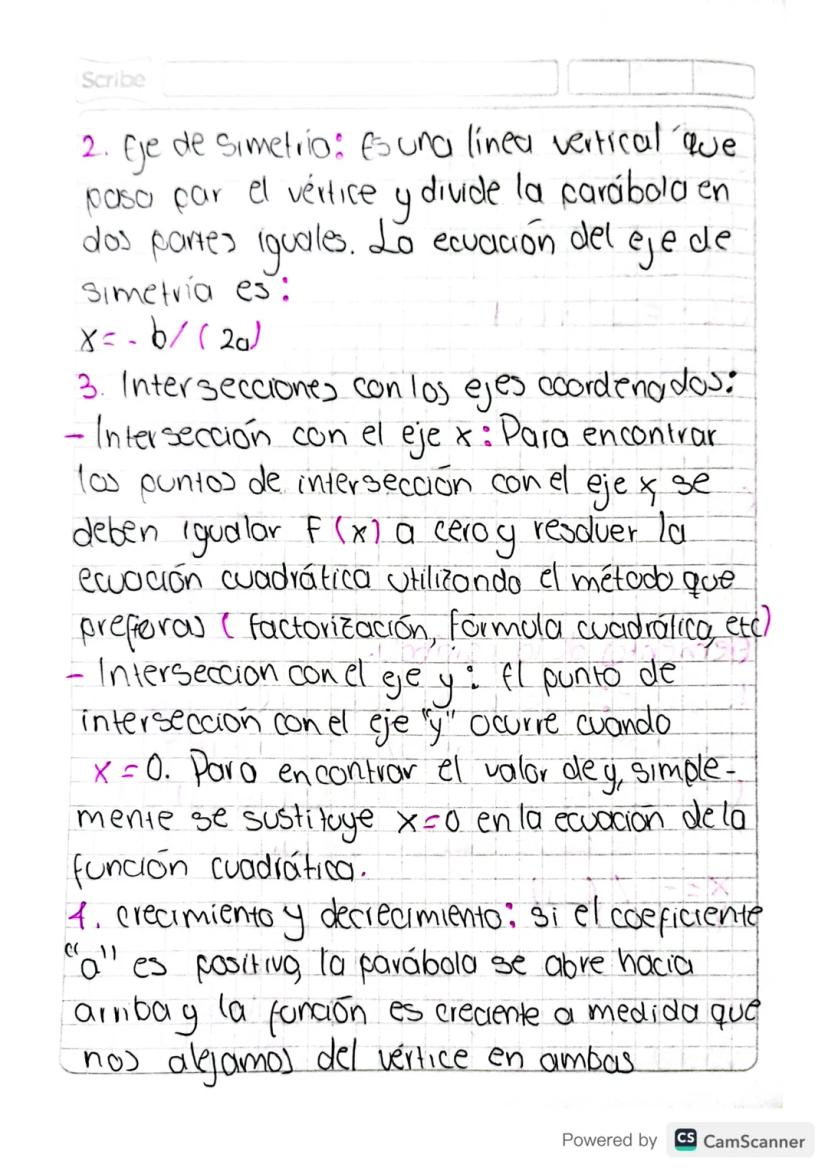 Scribe
2. Eje de simetria: Es una línea vertical que
pasa por el vértice y divide la parábola en
dos partes iguales. La ecuación del eje de
simetría es:
x = - b/( 2a)
3. Intersecciones con los ejes coordenados:
- Intersección con el eje x: Para encontrar
los puntos de intersección con el eje x, se
deben igualar F (x) a cero y resolver la
ecuación cuadrática utilizando el método que
prefieras ( factorización, fórmula cuadrática, etc)
- Interseccion con el eje y: El punto de
intersección con el eje "y" ocurre cuando
x = 0. Para encontrar el valor de y, simple-
mente se sustituye x=0 en la ecuación de la
función cuadrática.
4. crecimiento y decrecimiento: Si el coeficiente
"a" es positivo, la parábola se abre hacia
arriba y la función es creciente a medida que
nos alejamos del vértice en ambas
Powered by CS CamScanner